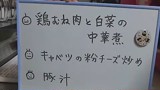 鶏むね肉と白菜の
中華煮
キャベツの粉チーズ炒め
豚汁